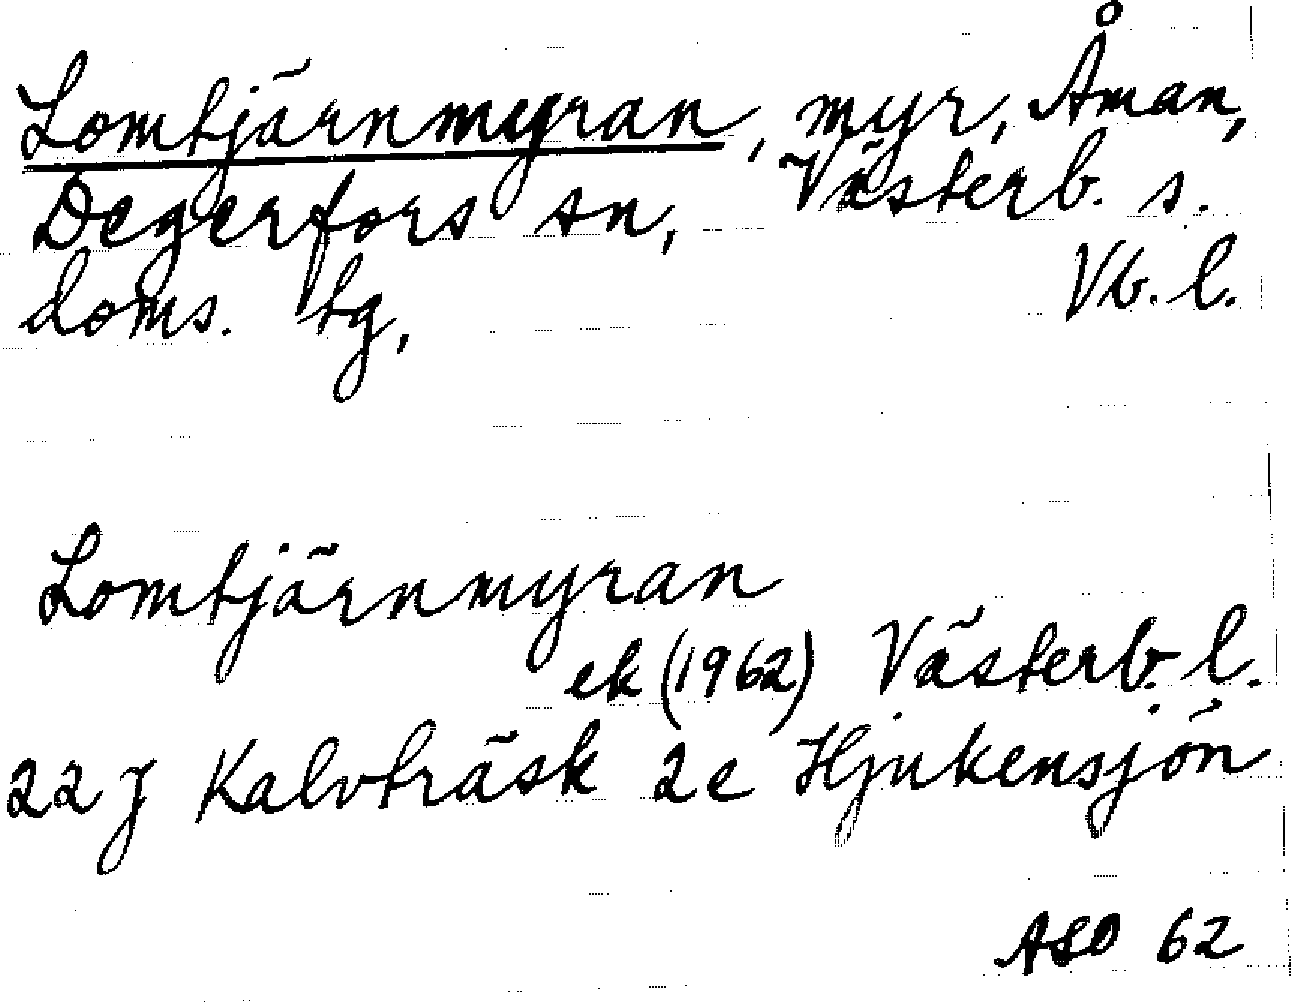 Lomtjärnmyran, myr, Åman,
Degerfors sn, Västerb. s.
doms. tg, Vb. l.
Lomtjärnmyran
ek (1962) Västerb. l.
22 J Kalvträsk 2e Hjukensjön
ASO 62